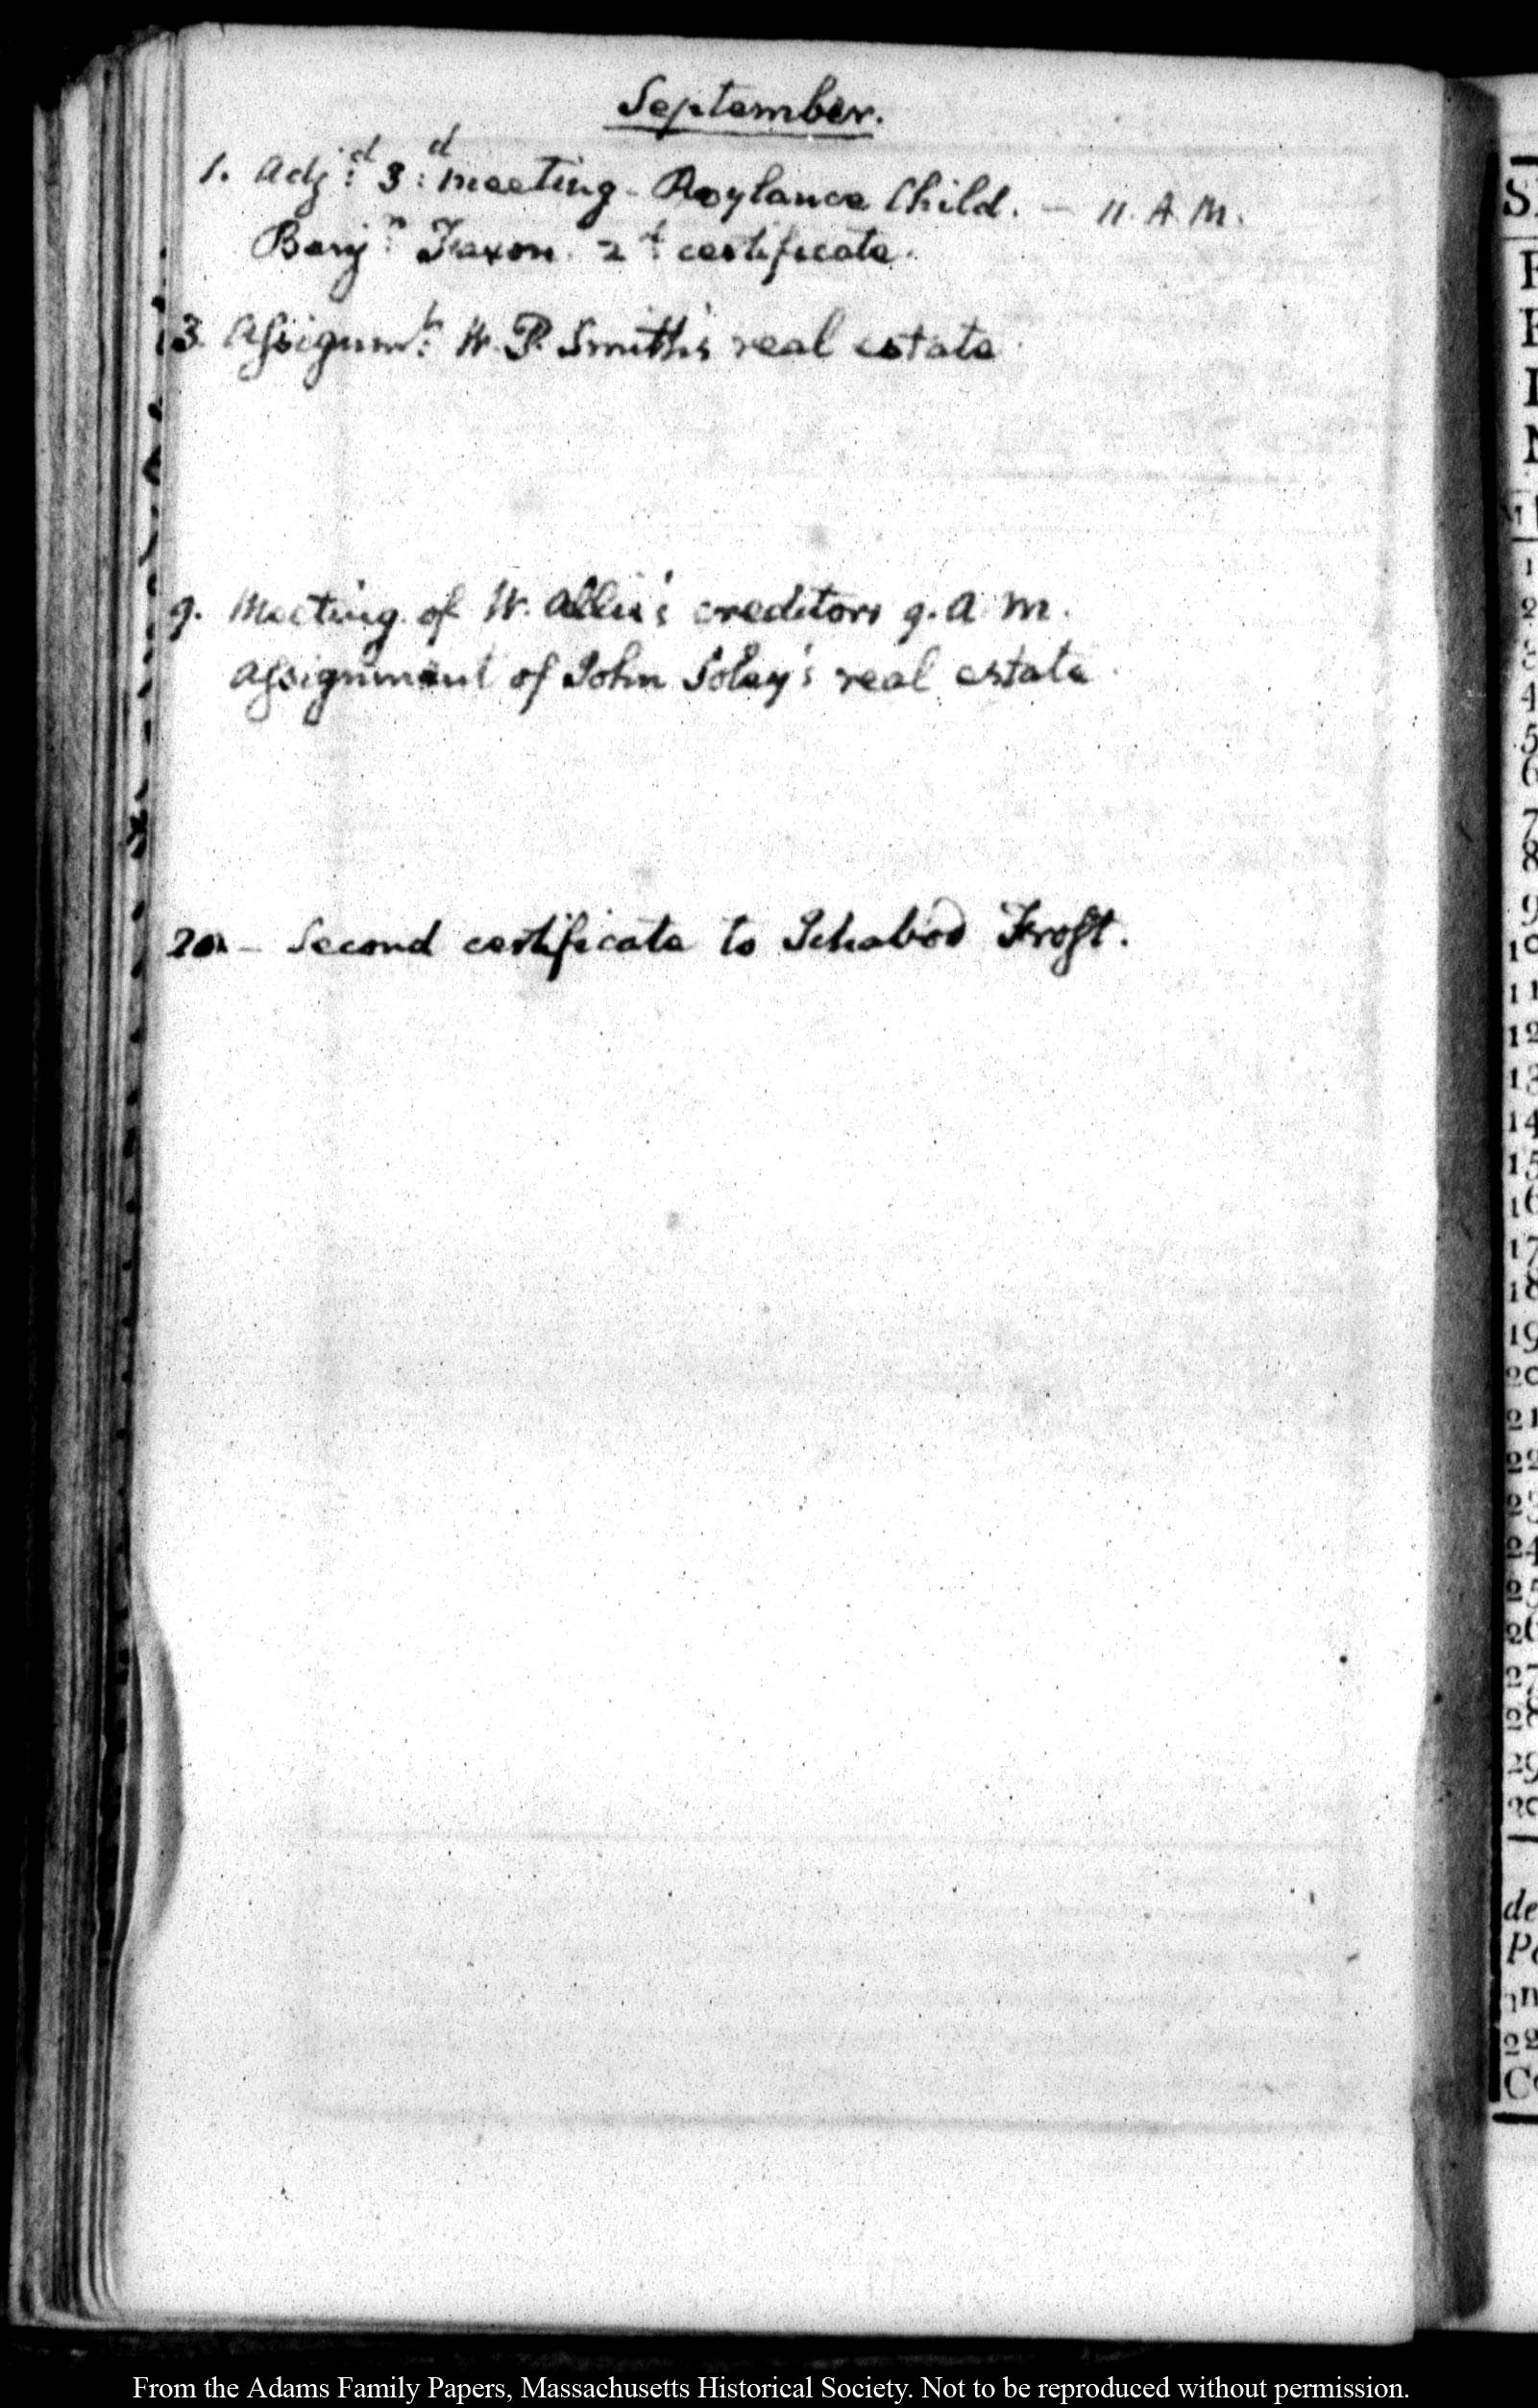 September.
1. Adj:d 3:d meeting - Roylance Child. - 11. A.M.
Benj:n Faxon. 2d: certificate.
3. Assignmt: W. P. Smith's real estate
9. Meeting of W. Allen's creditors 9. A M.
assignment of John Soley's real estate
20. - Second certificate to Ichabod Frost.
S
1
2
3
4
5
6
7
8
9
10
11
12
13
14
15
16
17
18
19
20
21
22
23
24
25
26
27
28
29
30
de
From the Adams Family Papers, Massachusetts Historical Society. Not to be reproduced without permission.